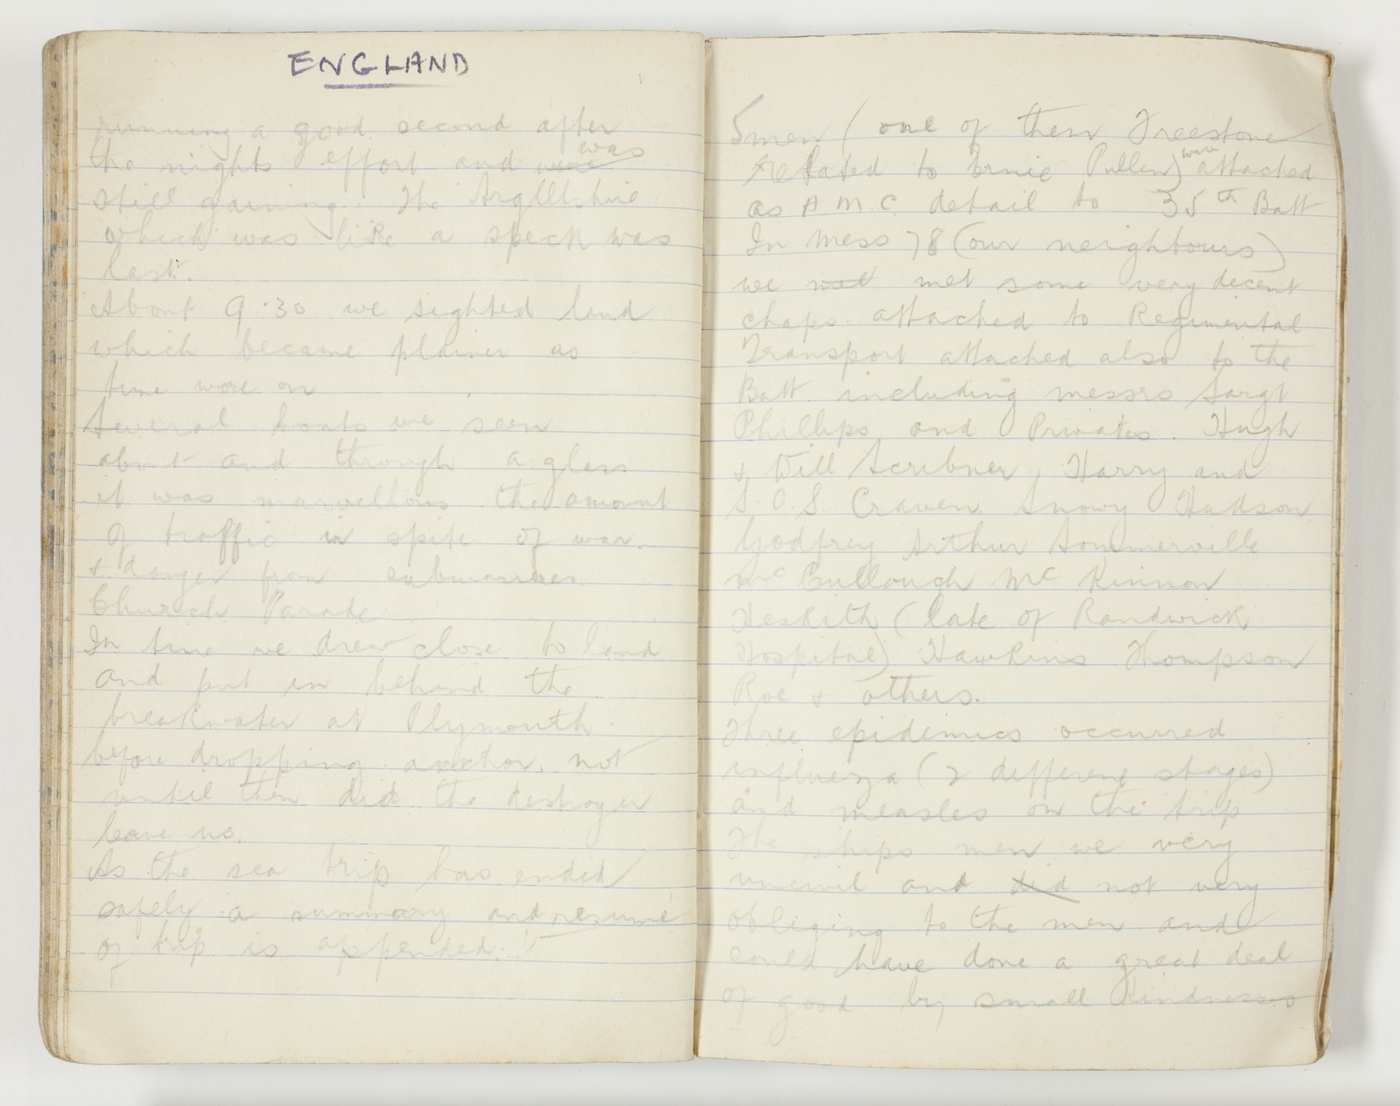 ENGLAND
running a good second after
the nights effort and were was
still gaining. The Argyllshire
which was like a speck was
last.
About 9.30 we sighted land
which became plainer as
time wore on
Several boats we seen
about and through a glass
it was marvellous the amount
of traffic in spite of war.
& danger from submarines.
Church Parade
In time we drew close to land
and put in behind the
breakwater at Plymouth.
before dropping anchor, not
until then did the destroyer
leave us.
As the sea trip has ended
safely a summary and resume
of trip is appended:-
5 men (one of them Freestone
related to Ernie Pullen) were attached
as A M C detail to 35th Batt
In Mess 78 (our neighbours)
we met met some very decent
chaps attached to Regimental
Transport attached also to the
Batt. including messrs Sargt
Phillips and Privates. Hugh
& Will Scribner, Harry and
S.O.S. Craven Snowy Hudson
Godfrey Arthur Sommerville
Mc Cullough Mc Kinnon
Heskith (late of Randwick
Hospital) Hawkins Thompson
Roe & others.
Three epidemics occurred
influenza (2 different stages)
and measles on the trip
The ships men we very
uncivil and did not very
obliging to the men and
could have done a great deal
of good by small kindnesses